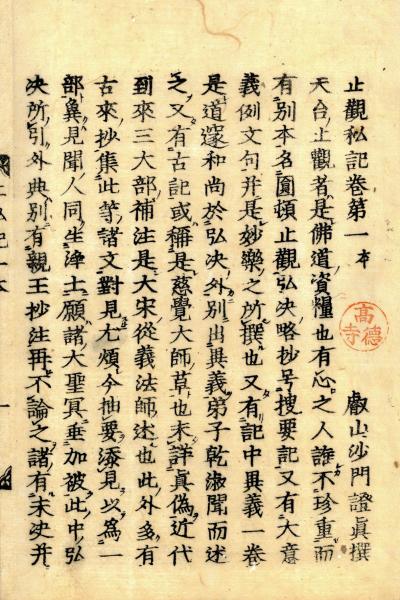 止觀私記卷第一 本
叡山沙門證眞撰
天台止觀者是佛道資糧也有心之人誰不珍重而
有別本名圓頓止觀弘決略抄号搜要記又有大意
義例文句并是妙樂之所撰也又有記中異義一卷
是道邃和尚於弘决外別出異義弟子乾淑聞而述
之又有古記或稱是慈覺大師草也未詳眞偽近代
到來三大部補注是大宋從義法師述也此外多有
古來抄集此等諸文對見尤煩今抽要添見以為一
部冀見聞人同生淨土願諸大聖冥垂加被此中弘
决所引外典別有親王抄注再不論之諸有未决并
高德寺